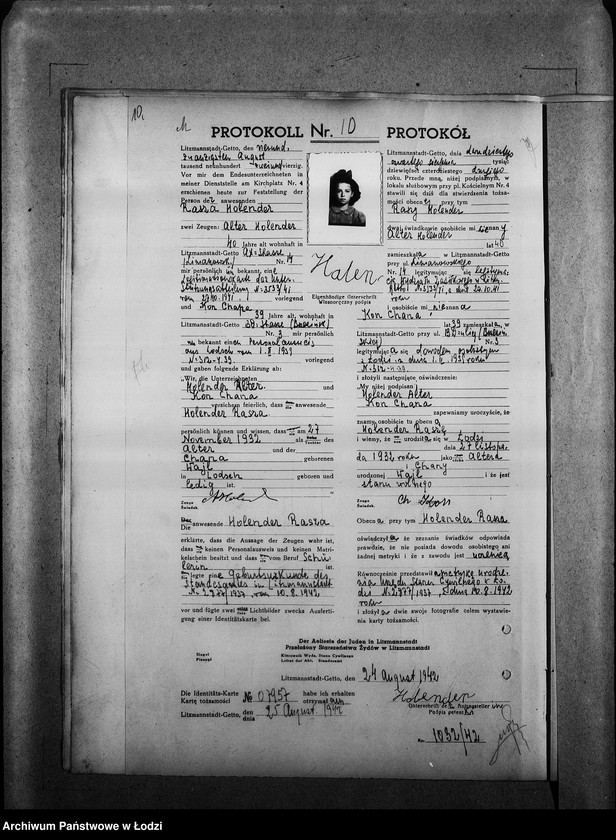 10.
PROTOKOLL Nr. 10 PROTOKÓŁ
Litzmannstadt-Getto, den
zwanzigsten August
tausend neunhundert vierzig.
Vor mir dem Endesunterzeichneten in
meiner Dienststelle am Kirchplatz Nr. 4
erschienen heute zur Feststellung der
Person der anwesenden
Rasza Holender
zwei Zeugen: Alter Holender
40 Jahre alt wohnhaft in
Litzmannstadt-Getto
Nr. 14
mir persönlich bekannt, eine
N. 3533/41
vom 29.10.1941. vorlegend
und Kon Chana
39 Jahre alt, wohnhaft in
Litzmannstadt-Getto
Nr. 3 mir persönlich
bekannt einen Personalausweis
aus Lodsch vom 1.8.1939
vorlegend
und gaben folgende Erklärung ab:
"Wir, die Unterzeichneten
Holender Alter und
Kon Chana
versichern feierlich, dass anwesende
Holender Rasza
persönlich kennen und wissen, dass am 27
November 1932 als
Alter und der
Chana geborenen
Wajl
in Lodsch geboren und
ledig ist. "
Zeuge
Świadek
Die anwesende Holender Rasza
erklärte, dass die Aussage der Zeugen wahr ist,
dass keinen Personalausweis und keinen Matri-
kelschein besitzt und dass vom Beruf Schü
lerin ist.
legte eine Geburtsurkunde des
Standesamtes in Litzmannstadt
N. 2977/1937, vom 10.8.1942
vor und fügte zwei Lichtbilder zwecks Ausferti-
gung einer Identitätskarte bei.
Litzmannstadt-Getto, dnia dwudziestego
czwartego sierpnia tysiąc
dziewięćset czterdziestego drugiego
roku. Przede mną, niżej podpisanym, w
lokalu służbowym przy pl. Kościelnym Nr. 4
stawili się dziś dla stwierdzenia tożsa-
mości obecnej przy tym
Raszy Holender
dwaj świadkowie osobiście mi znany
Alter Holender
lat 40
zamieszkały w Litzmannstadt-Getto
przy ul. Limanowskiego
Nr. 14 legitymując się
roku
i osobiście mi nieznana
Kon Chana
lat 39 zamieszkała, w
Litzmannstadt-Getto przy ul.
Nr. 3
legitymująca się dowodem osobistym
z Łodzi z dnia 1.8.1939 roku
i złożyli następujące oświadczenie:
"My niżej podpisani
Holender Alter
Kon Chana
zapewniamy uroczyście, że
znamy osobiście tu obecną
Holender Raszę
i wiemy, że urodziła się w Łodzi
dnia 27 listopa
da 1932 roku jako Altera
i Chany
urodzonej Wajl i że jest
stanu wolnego "
Zeuge
Świadek
Ch Kon
Obecna przy tym Holender Rasza
oświadczyła że zeznanie świadków odpowiada
prawdzie, że nie posiada dowodu osobistego ani
żadnej metryki i że z zawodu jest uczennicą
Równocześnie przedstawiła metrykę urodze-
nia Urzędu Stanu Cywilnego
N. 2977/1937, z dnia 10.8.1942
roku
i złożyła dwie swoje fotografie celem wystawie-
nia karty tożsamości.
Holender
Eigenhändige Unterschrift
Własnoręczny podpis
Der Aelteste der Juden in Litzmannstadt
Przełożony Starszeństwa Żydów w Litzmannstadt
Siegel
Pieczęć
Kierownik Wydz. Stanu Cywilnego
Leiter der Abt. Standesamt
Litzmannstadt-Getto, den 24 August 1942
Die Identitäts-Karte
Kartę tożsamości № 07957 habe ich erhalten
otrzymałam
Litzmannstadt-Getto, den
dnia 25 August 1942
Holender
Unterschrift
Podpis petenta
1032/42
Archiwum Państwowe w Łodzi